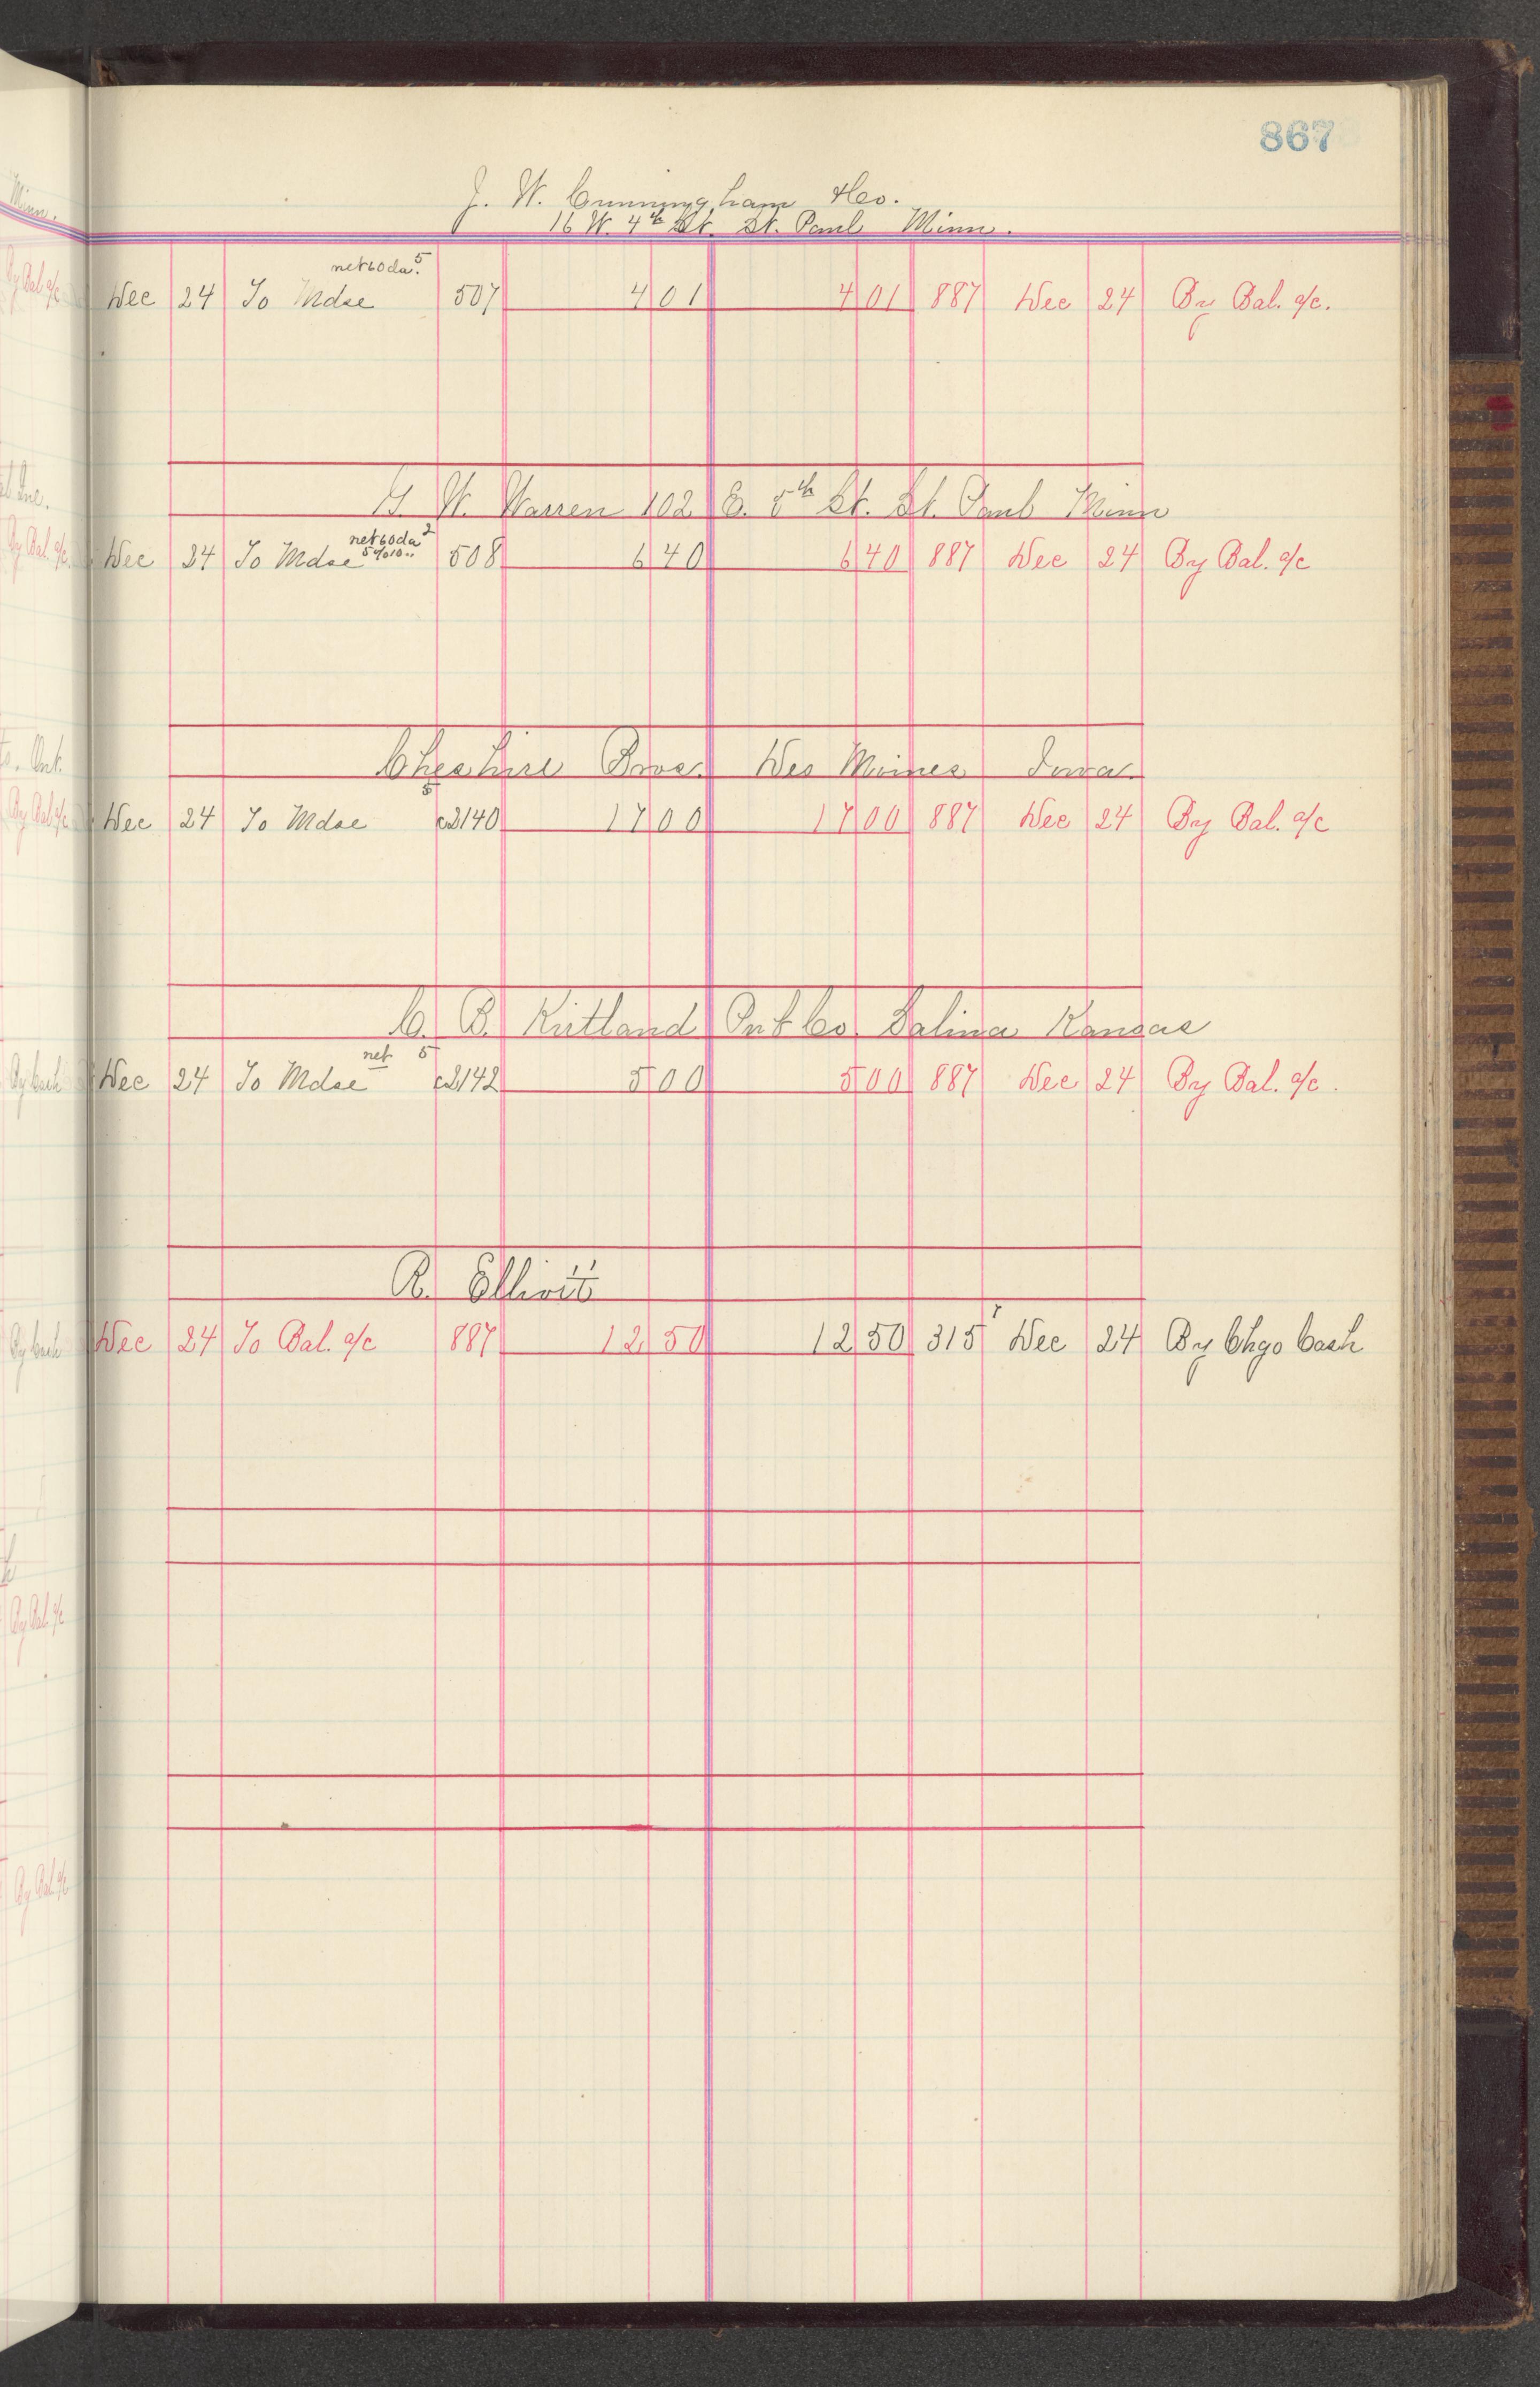 867
J. W. Cunningham & Co.
16 W. 4th St. St. Paul Minn.
net 60 da. 5
Dec 24 To Mdse 507 4 01 4 01 887 Dec 24 By Bal. a/c.
W. Warren 102 E. 5th St. St. Paul Minn
net 60 da 2
5% 10 "
Dec 24 To Mdse 508 6 40 6 40 887 Dec 24 By Bal. a/c
Cheshire Bros. Des Moines Iowa.
5
Dec 24 To Mdse c2140 17 00 17 00 887 Dec 24 By Bal. a/c
C. B. Kirtland Pub Co. Salina Kansas
net 5
Dec 24 To Mdse c2142 5 00 5 00 887 Dec 24 By Bal. a/c.
R. Elliott
Dec 24 To Bal. a/c 887 12 50 12 50 315 Dec 24 By Chgo Cash
Minn.
By Bal a/c
Inc.
By Bal. a/c
Ont.
By Bal a/c
By Cash
By Cash
By Bal. a/c
By Bal a/c